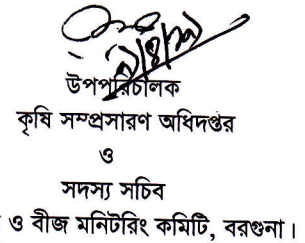 উপপরিচালক
কৃষি সম্প্রসারণ অধিদপ্তর
ও
সদস্য সচিব
ও বীজ মনিটরিং কমিটি, বরগুনা।